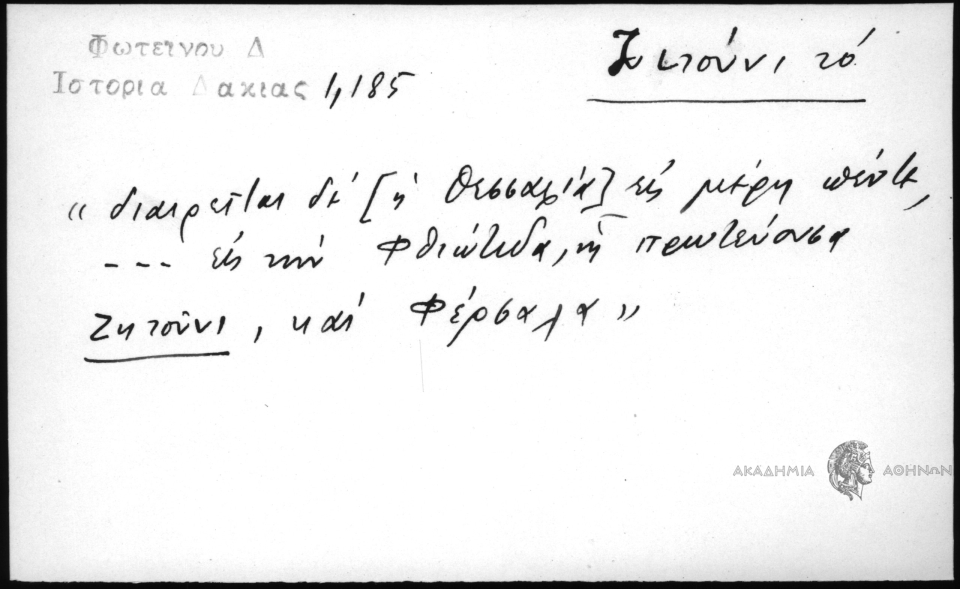 Φωτεινου Δ
Ιστορια Δακιας 1,185
Ζητούνι τό
"διαιρεῖται δέ [ἡ Θεσσαλία] εἰς μέρη πέντε,
--- εἰς τήν Φθιώτιδα, ἧς πρωτεύουσα
Ζητούνι, καί Φέρσαλα"
ΑΚΑΔΗΜΙΑ ΑΘΗΝΩΝ